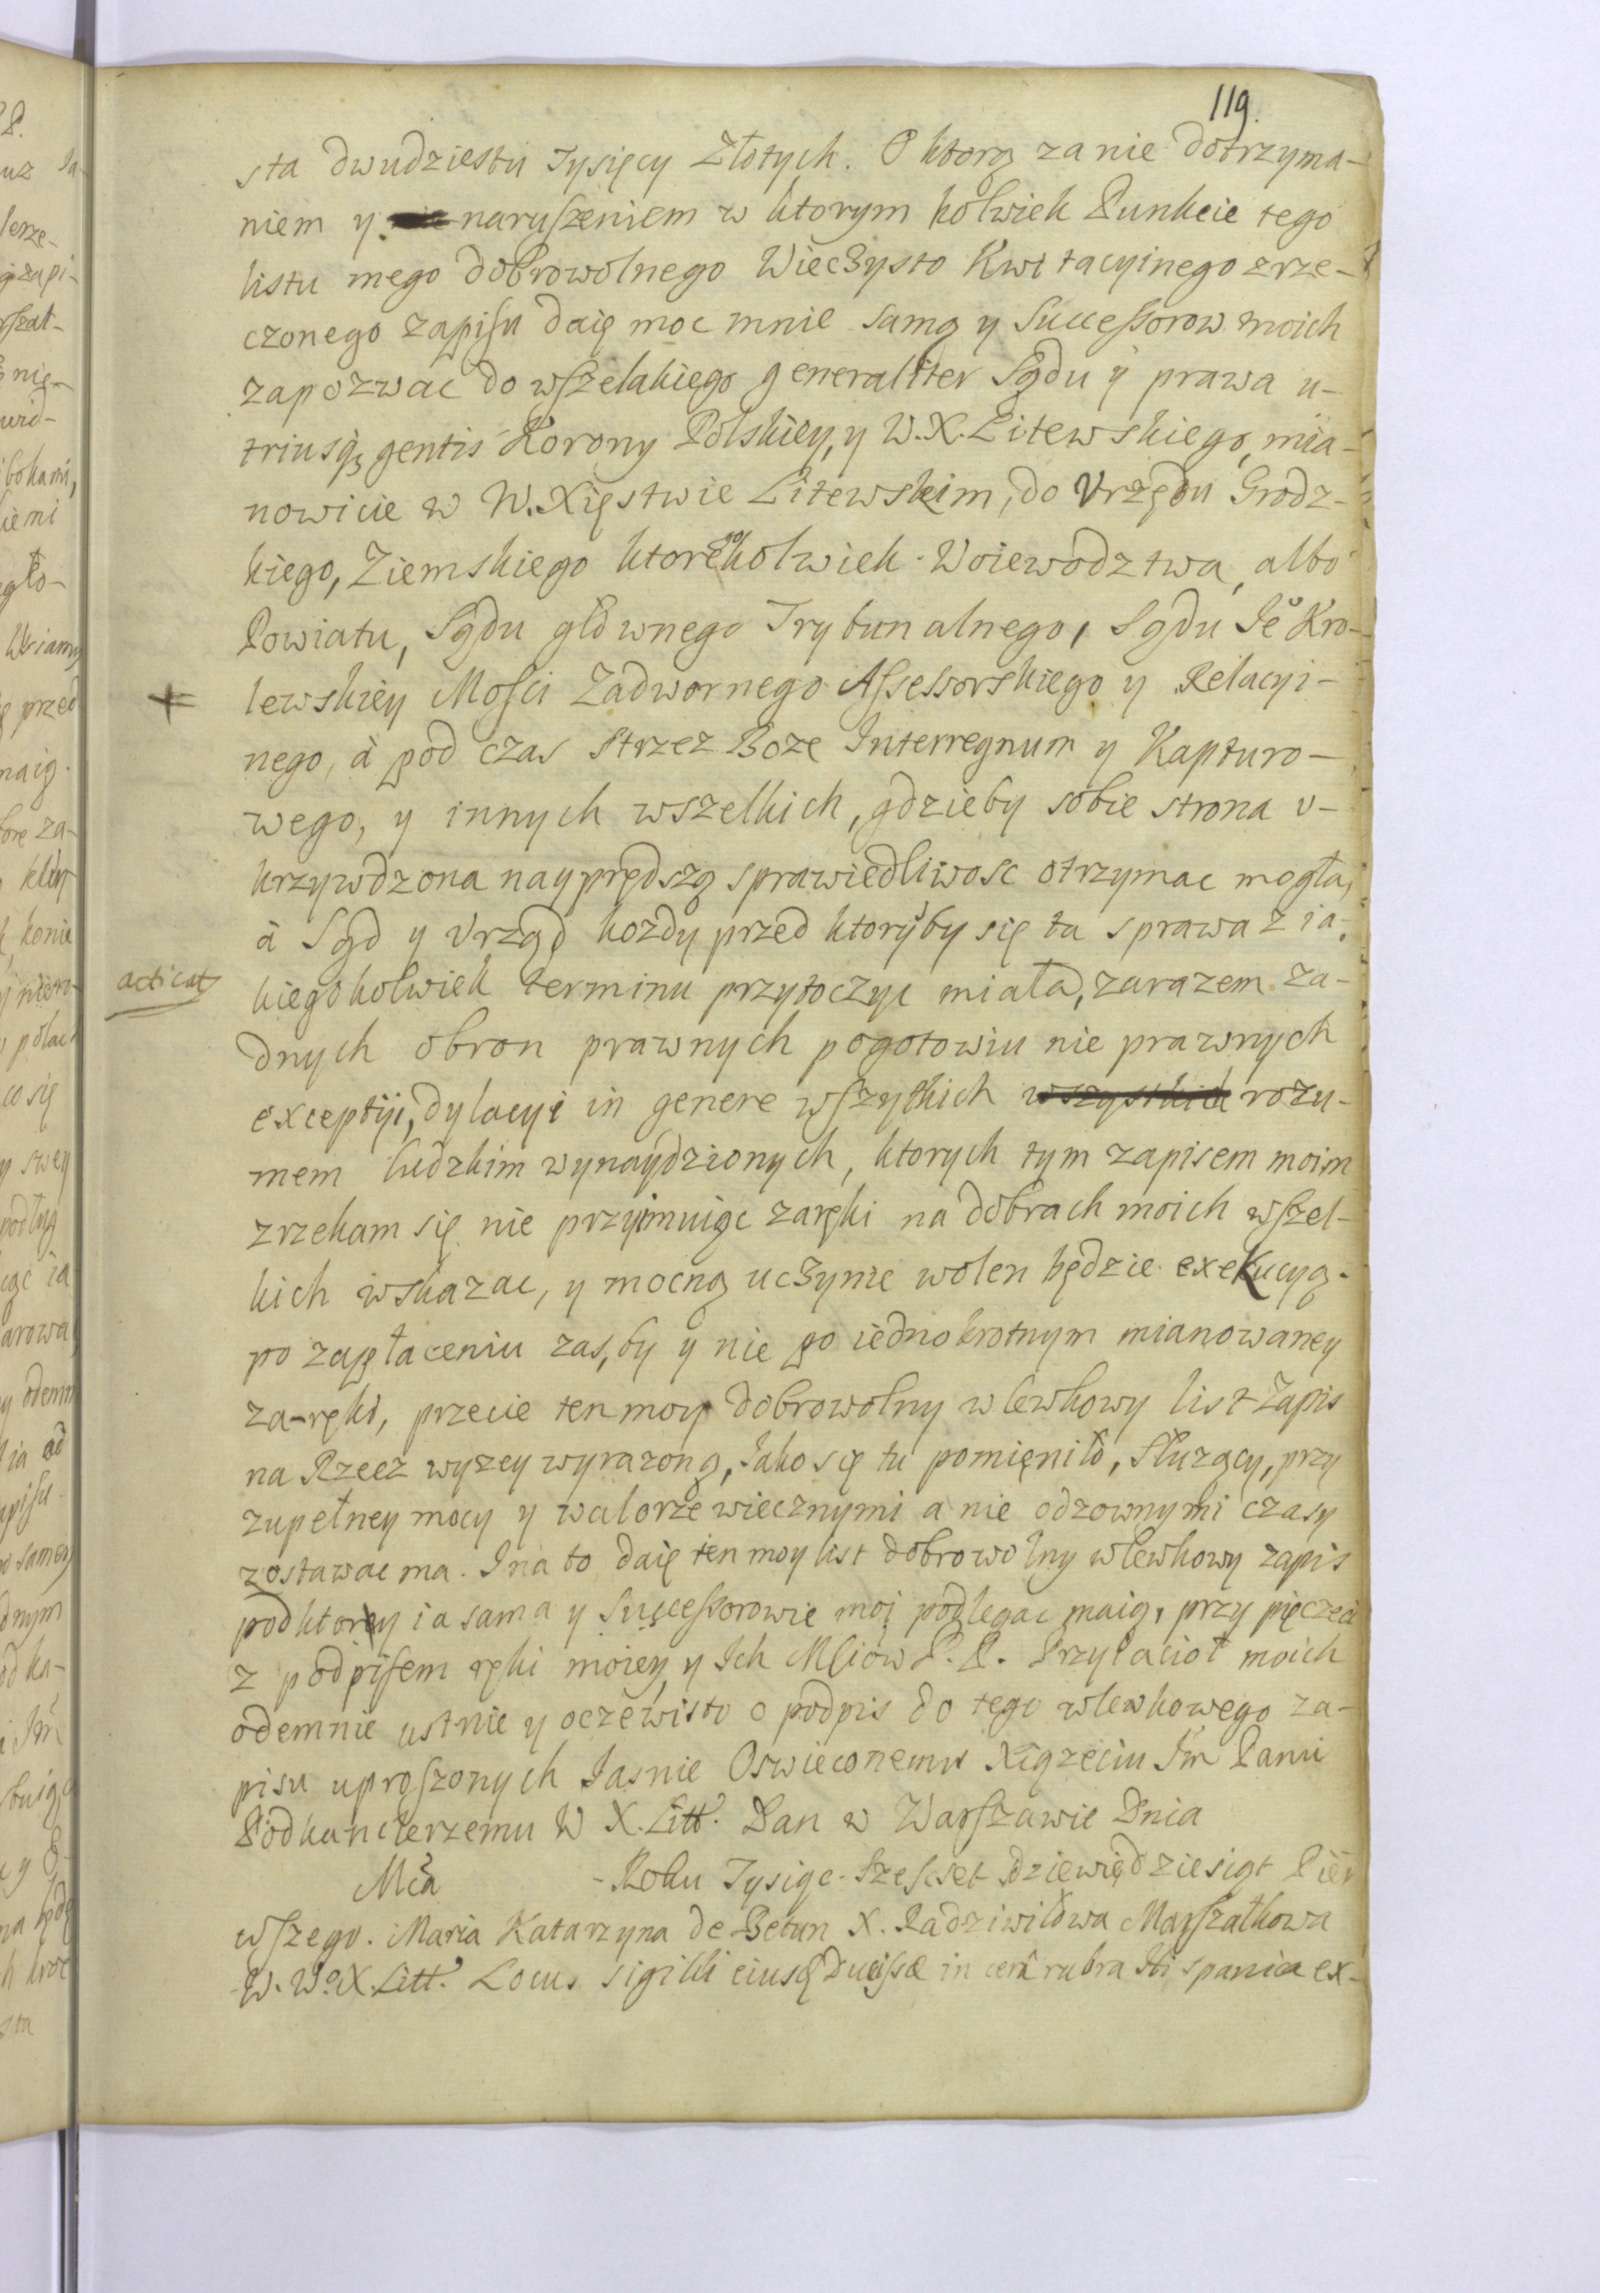 119.
sta dwudziestu Tysięcy Złotych. O ktorą za nie dotrzyma-
niem y naruszeniem w ktorym kolwiek Punkcie tego
listu mego dobrowolnego Wieczysto Kwitacyinego zrze-
czonego zapisu daię moc mnie samą y Successorow moich
zapozwac do wszelakiego generaliter Sądu y prawa u-
triusq3 gentis Korony Polskiey, y W. X. Litewskiego, mia-
nowicie w W. Xięstwie Litewskim, do Vrzędu Grodz-
kiego, Ziemskiego ktoregokolwiek Woiewodztwa, albo
Powiatu, Sądu głownego Trybunalnego, Sądu Je° Kro-
lewskiey Mosci Zadwornego Assessorskiego y Relacyi-
nego, à pod czas strzez Boze Interregnum y Kapturo-
wego, y innych wszelkich, gdzieby sobie strona v-
krzywdzona nayprędszą sprawiedliwosc otrzymac mogła,
à Sąd y Vrząd kozdy przed ktorỹby się ta sprawa z ia-
acticat
kiegokolwiek terminu przytoczyc miała, zarazem za-
dnych obron prawnych pogotowiu nie prawnych
exceptiji, dylacyi in genere wszytkich wszystkich rozu-
mem ludzkim wynaydzionych, ktorych tym zapisem moim
zrzekam się nie przyimuiąc zaręki na dobrach moich wszel-
kich wskazac, y mocną uczynic wolen będzie exekucyą.
po zapłaceniu zas, by y nie po iednokrotnym mianowaney
za-ręki, przecie ten moy dobrowolny wlewkowy list Zapis
na Rzecz wyzey wyrazoną, Jako się tu pomieniło, Służący, przy
zupełney mocy y walorze wiecznymi a nie odzownymi czasy
zostawac ma. I na to daię ten moy list dobrowolny wlewkowy zapis
podktory ia sama y Successorowie moi podlegac maią, przy pięczęci
z podpisem ręki moiey y Ich Mciow P. P. Przyiacioł moich
odemnie ustnie y oczewisto o podpis do tego wlewkowego za-
pisu uproszonych Jasnie Oswieconemu Xiązeciu Jm Panu
Podkanclerzemu W X. Litt. Dan w Warszawie Dnia
Mca - Roku Tysiąc Szescset dziewiędziesiąt Pier
wszego. Maria Katarzyna de Betun X. Radziwiłowa Marszałkowa
W. W° X. Litt. Locus sigilli eiusq Ducissæ in cera rubra Hispanica ex-